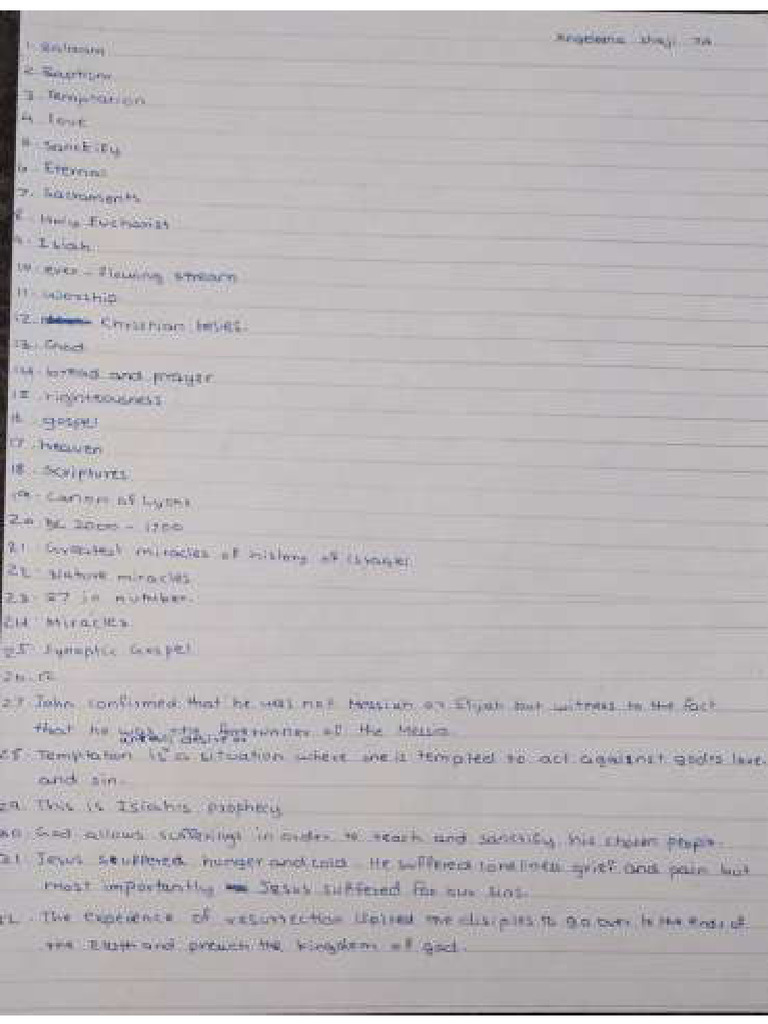 Angeleena Shaji 7A
1. Salvation
2. Baptism
3. Temptation
4. love
5. Sanctify
6. Eternal
7. Sacraments
8. Holy Eucharist
9. Isiah
10. ever-flowing stream
11. worship
12. Christian
13. God
14. bread and prayer
15. righteousness
16. gospel
17. heaven
18. Scriptures
19. Canon of Lyons
20. BC 2000 - 1700
21. Greatest miracles of history of
22. Nature miracles
23. 27 in number.
24. Miracles
25. Synoptic Gospel
26. 12
27. John confirmed that he was not Messiah or Elijah but witness to the fact
that he was the forerunner of the Messia.
28. Temptation is a situation where one is tempted to act against god's love
and sin.
29. This is Isiah's prophecy
30. God allows sufferings in order to teach and sanctify his chosen people.
31. Jesus suffered hunger and cold. He suffered loneliness grief and pain but
most importantly Jesus suffered for our sins.
The experience of resurrection the disciples to go over to the ends of
the Earth and preach the kingdom of god.